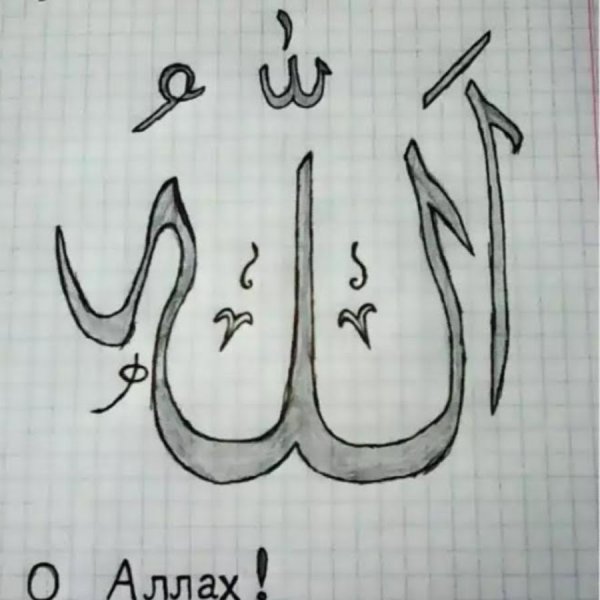 اَللّٰهُ
О Аллах!